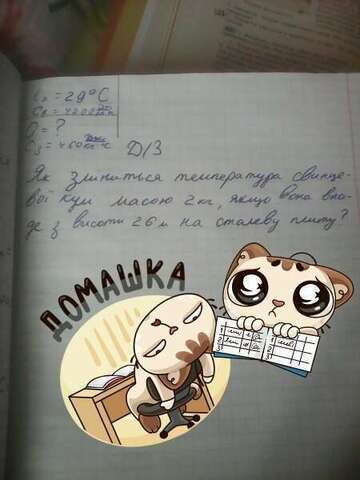 t₂ = 29°C
Cв = 4200 
Q = ?
= 460 Дж/кг °C Д/З
Як зміниться температура свинце-
вої кулі масою 2 кг, якщо вона впа-
де з висоти 26 м на сталеву плиту?
ДОМАШКА